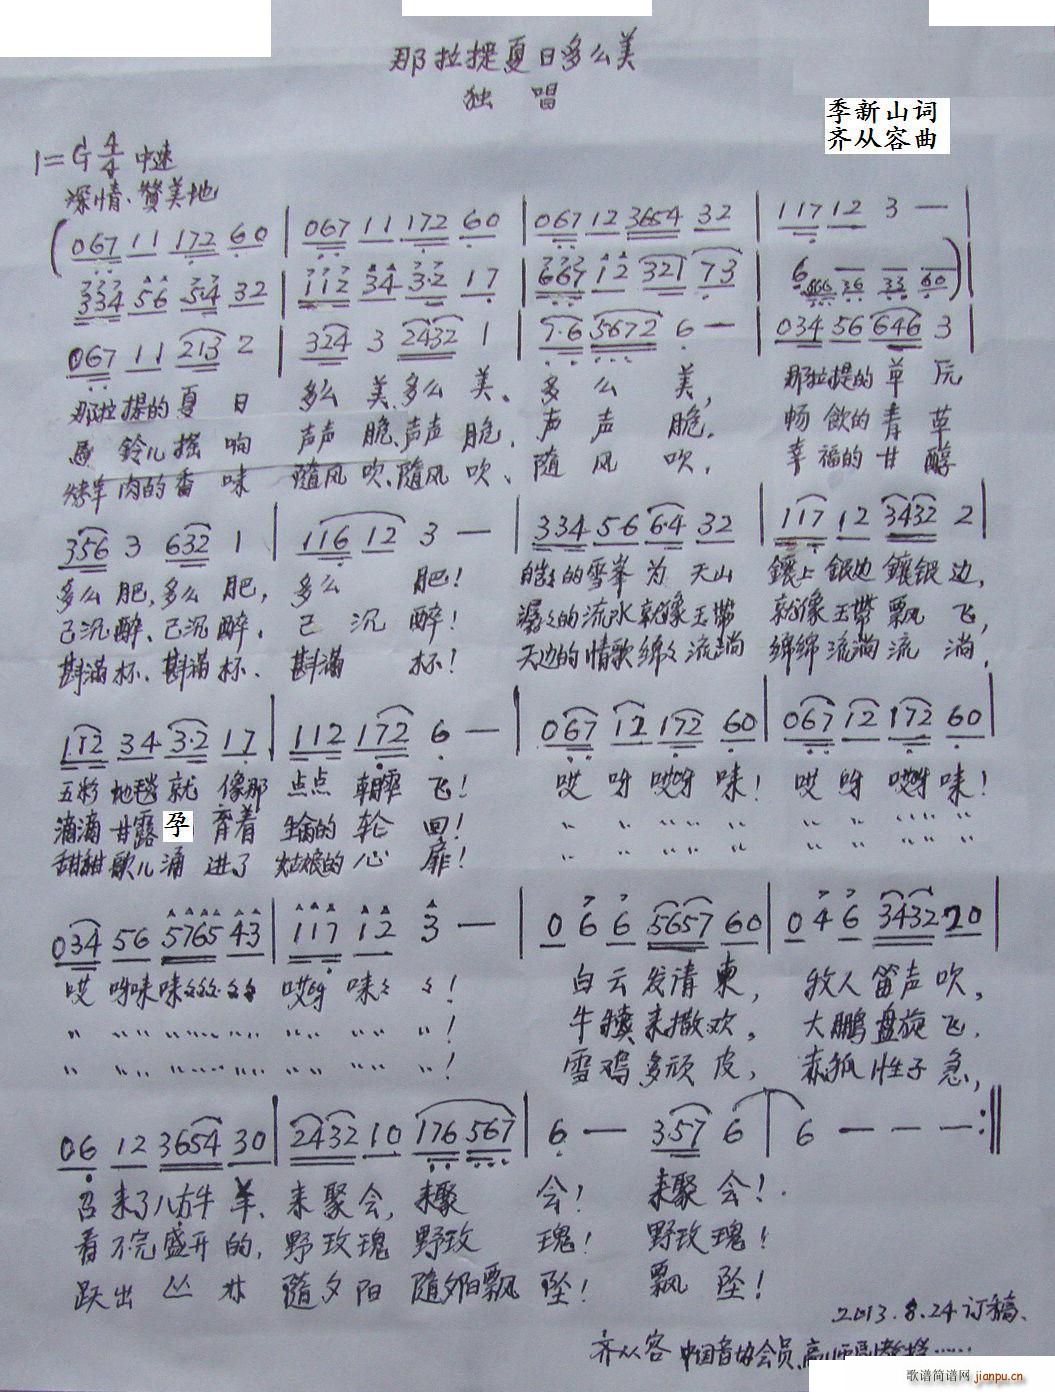 那拉提夏日多么美
独 唱
季新山词
齐从容曲
1=G 4/4 中速
深情、赞美地
(067 11 172 60 | 067 11 172 60 | 067 12 3654 32 | 117 12 3 — |
334 56 5·4 32 | 112 34 3·2 17 | 667 12 321 73 | 6 — — — 666 36 33 60)
067 11 213 2 | 324 3 2432 1 | 7·6 5672 6 — | 034 56 646 3
那拉提的夏日 多么美、多么美、多么美, 那拉提的草原
马铃儿摇响 声声脆、声声脆、声声脆. 畅饮的青草
烤羊肉的香味 随风吹、随风吹、随风吹. 幸福的甘醇
356 3 632 1 | 116 12 3 — | 334 56 6·4 32 | 117 12 3432 2 |
多么肥,多么肥,多么肥! 皑々的雪峯为天山 镶上银边镶银边,
已沉醉、已沉醉.已沉醉! 潺々的流水就像玉带 就像玉带飘飞,
斟满杯、斟满杯、斟满杯! 天边的情歌绵々流淌 绵绵流淌流淌.
112 34 3·2 17 | 112 172 6 — | 067 12 172 60 | 067 12 172 60 |
五彩地毯就像那点点朝霞飞! 哎呀哎呀咪! 哎呀哎呀咪!
滴滴甘露孕育着生命的轮回! 〃 〃 〃〃 〃 〃 〃 〃〃 〃
甜甜歌儿涌进了姑娘的心扉! 〃 〃 〃〃 〃 〃 〃 〃〃 〃
034 56 5765 43 | 117 12 3 — | 0 6 6 5657 60 | 0 4 6 3432 20 |
哎呀咪咪々々々々々 哎呀咪々々! 白云发请柬, 牧人笛声吹,
〃 〃〃 〃〃〃〃 〃〃 〃〃 〃〃 〃! 牛犊来撒欢, 大鹏盘旋飞.
〃 〃〃 〃〃〃〃 〃〃 〃〃 〃〃 〃! 雪鸡多顽皮, 赤狐性子急,
06 12 3654 30 | 2432 10 176 567 | 6 — 357 6 | 6 — — — :‖
召来了八方牛羊、来聚会,来聚会! 来聚会!
看不完盛开的,野玫瑰野玫瑰! 野玫瑰!
跃出丛林随夕阳随夕阳飘坠! 飘坠!
2013.8.24订稿.
齐从容 中国音协会员、
歌谱简谱网 jianpu.cn